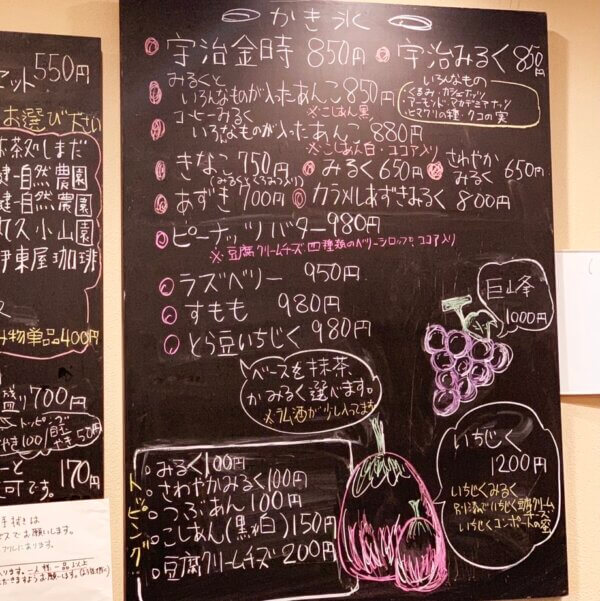 かき氷
宇治金時 850円
宇治みるく 850円
みるくと
いろんなものが入ったあんこ 850円
※こしあん黒
いろんなもの
・くるみ・カシューナッツ
・アーモンド・マカデミアナッツ
・ヒマワリの種・クコの実
コーヒーみるく
いろんなものが入ったあんこ 880円
※こしあん白・ココア入り
きなこ 750円
みるく 650円
さわやか
みるく 650円
あずき 700円
カラメルあずきみるく 800円
ピーナッツバター 980円
※豆腐クリームチーズ 四種類のベリーシロップと ココア入り
ラズベリー 950円
すもも 980円
とら豆いちじく 980円
ベースを抹茶
かみるく選べます。
※ラム酒が少し入ってます
巨山峰
1000円
いちじく
1200円
いちじくみるく
いちじくコンポート
トッピング
みるく 100円
さわやかみるく 100円
つぶあん 100円
こしあん(黒 白) 150円
豆腐クリームチーズ 200円
セット 550円
お選び下さい
自然農園
自然農園
丸久小山園
伊東屋珈琲
み物単品400円
盛り 700円
トッピング
170円
可です。